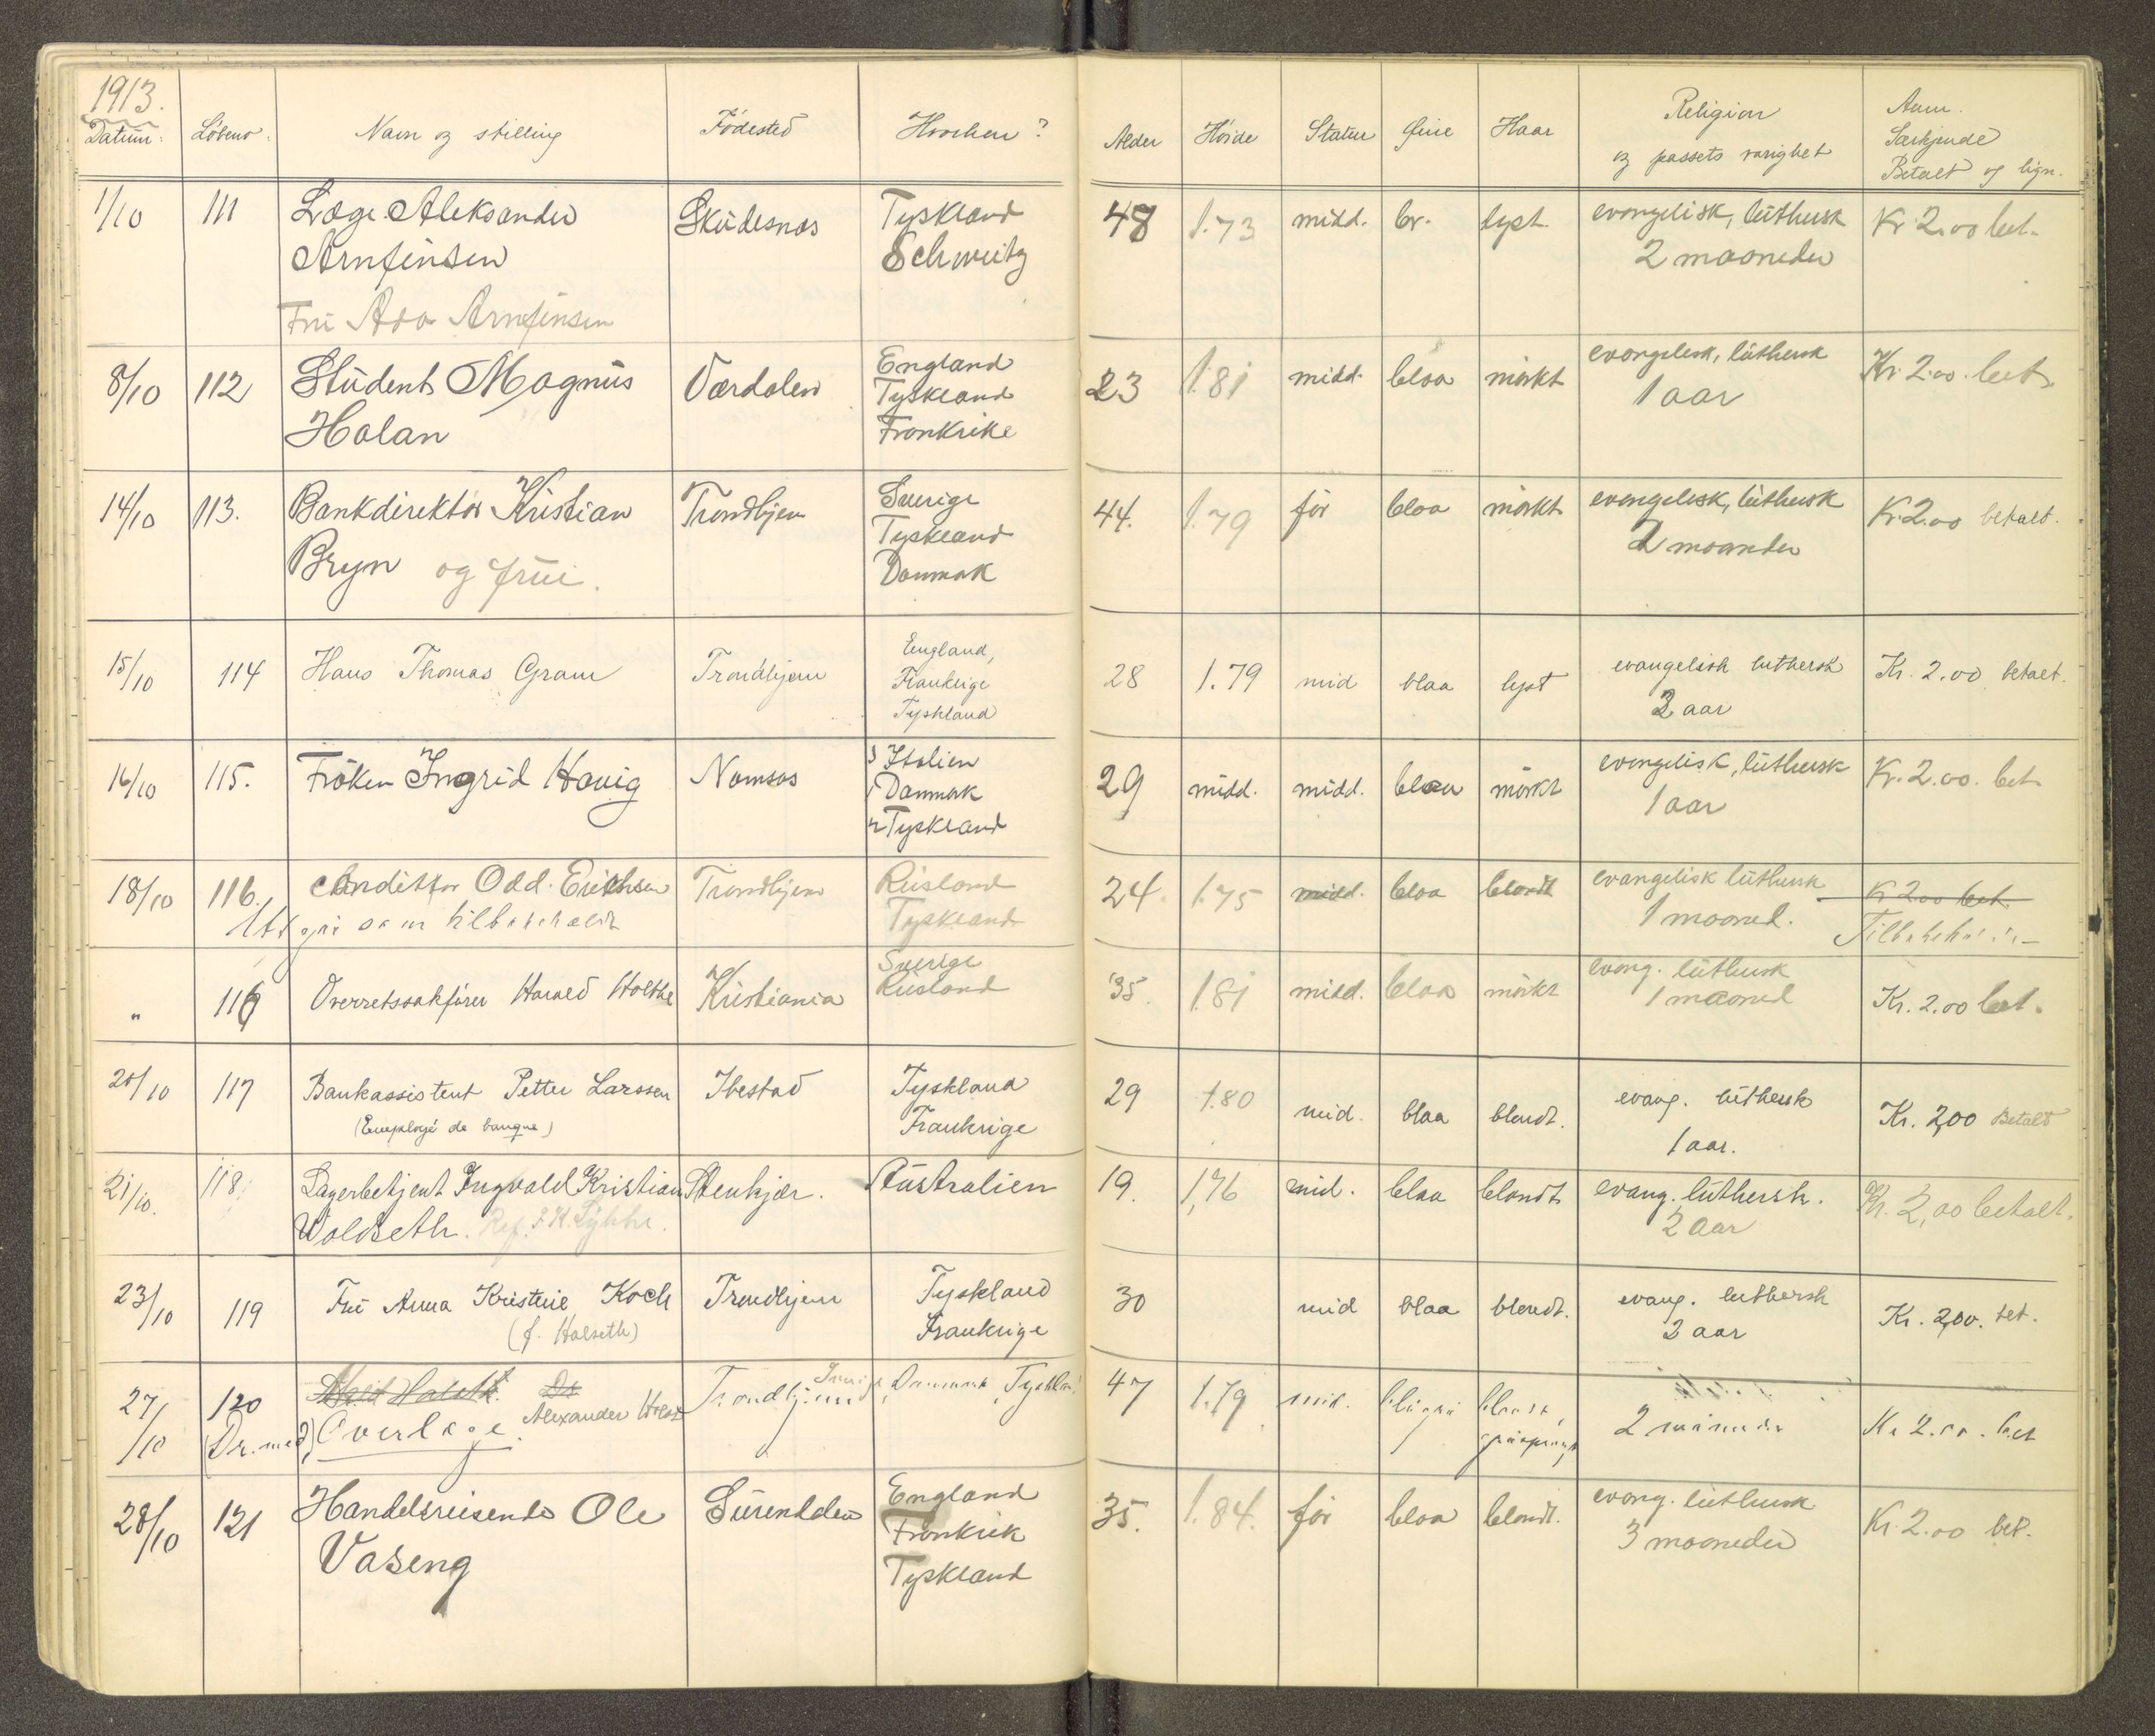 1913.
Datum: Löbeno. Navn og stilling Födested Hvorhen? Alder Höide Statur Öine Haar Religion og passets varighet Anm. Særkjende Betalt og lign.
1/10 111 Læge Aleksander Skudesnæs Tyskland 48 1.73 midd. br. lyst. evangelisk, luthersk Kr 2.00 bet.
Arnfinsen Schweitz 2 maaneder
Fru Arnfinsen
8/10 112 Student Magnus Værdalen England 23 1.81 midd. blaa mörkt evangelisk, luthersk Kr. 2.00. bet.
Holan Tyskland 1 aar
Frankrike
14/10 113. Bankdirektör Kristian Trondhjem Sverige 44. 1.79 för blaa mörkt evangelisk, luthersk Kr. 2.00 betalt.
Bryn og frue. Tyskland 2 maander
Danmak
15/10 114 Hans Thomas Gram Trondhjem England, 28 1.79 mid blaa lyst evangelisk luthersk Kr. 2.00 betalt.
Frankrige 3 aar
Tyskland
16/10 115. Fröken Ingrid Havig Namsos 3 Italien 29 midd. midd. blaa mörkt evangelisk, luthersk Kr. 2.00. bet.
1 Danmark 1 aar
2 Tyskland
18/10 116. Konditor Odd. Erichsen Trondhjem Rusland 24. 1.75 midd. blaa blondt evangelisk luthersk Kr 2.00 bet.
Utgår som tilbakekaldt Tyskland 1 maaned. Tilbakekaldt
" 116 Overretssakförer Harald Holthe Kristiania Sverige 35. 1.81 midd. blaa mörkt evang. luthersk Kr. 2.00 bet.
Rusland 1 maaned
20/10 117 Bankassistent Petter Larssen Ibestad Tyskland 29 1.80 mid. blaa blondt. evang. luthersk Kr. 2,00 Betalt
(Employé de banque) Frankrige 1 aar.
21/10. 118. Lagerbetjent Ingvald Kristian Stenkjær. Australien 19. 1,76 mid. blaa blondt evang. luthersk. Kr. 2,00 betalt.
Woldseth. Ref. 2 aar
23/10 119 Fru Anna Kristine Koch Trondhjem Tyskland 30 mid blaa blondt. evang. luthersk Kr. 2,00. bet.
(f. Halseth) Frankrige 2 aar
27/10 120 Halseth. Dr Trondhjem Sverige, Danmark, Tyskland 47 1.79 mid. blågrå blondt,
(Dr. med) Overlæge. Alexander Holst gråsprengt 2 måneder Kr 2.00. bet
28/10 121 Handelsreisende Ole Surendalen England 35. 1.84. för blaa blondt. evang. luthersk Kr. 2.00 bet.
Vaseng Frankrik 3 maaneder
Tyskland